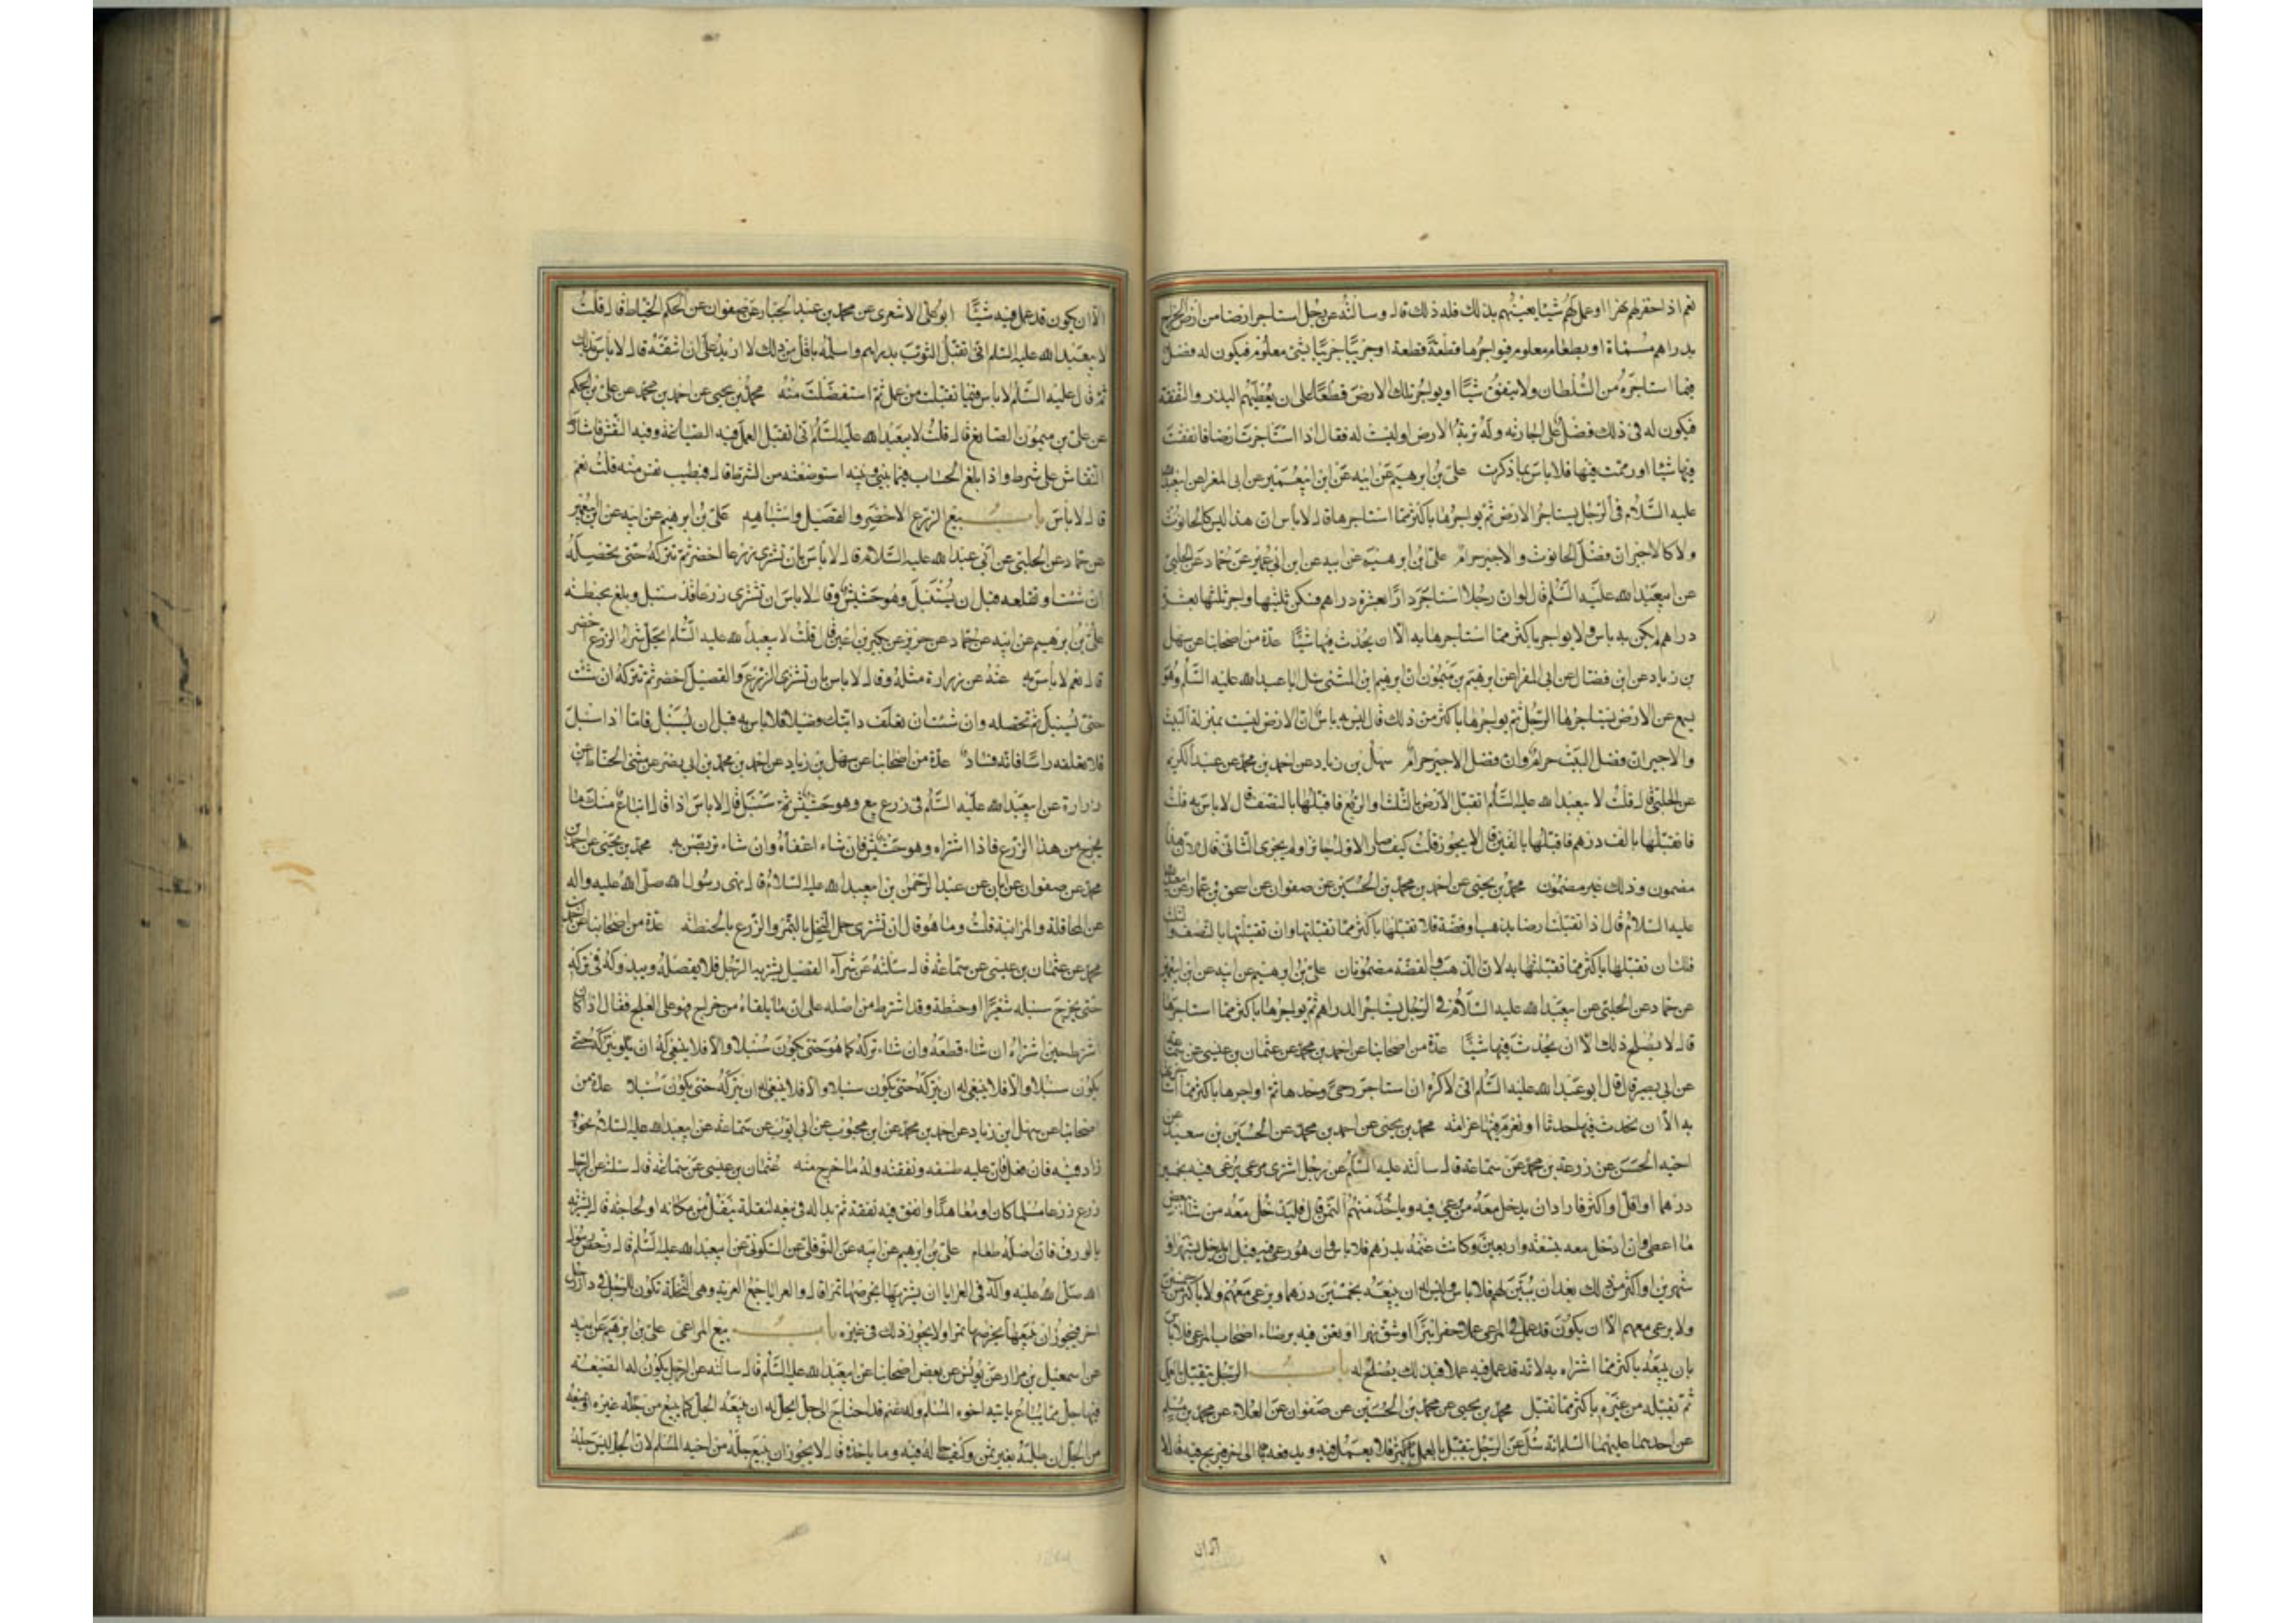 نعم اذا حفر لهم نهرا او عمل لهم شيئا يعينهم بذلك فله ذلك قال وسألته عن رجل استاجر ارضا من ارض الخراج
بدراهم مسماة او بطعام معلوم فيواجرها قطعة قطعة او جريبا جريبا بشئ معلوم فيكون له فضل
فيما استاجره من السلطان ولا ينفق شيئا او يواجر تلك الارض قطعا على ان يعطيهم البذر والنفقة
فيكون له في ذلك فضل على اجارته وله تربة الارض او ليست له فقال اذا استاجرت ارضا فانفقت
فيها شيئا او رممت فيها فلا باس بما ذكرت علي بن ابرهيم عن ابيه عن ابن ابيعمير عن ابي المغرا عن ابيعبد الله
عليه السلام في الرجل يستاجر الارض ثم يواجرها باكثر مما استاجرها قال لا باس ان هذا ليس كالحانوت
ولا كالاجير ان فضل الحانوت والاجير حرام علي بن ابرهيم عن ابيه عن ابن ابي عمير عن حماد عن الحلبي
عن ابيعبد الله عليه السلم قال لو ان رجلا استاجر دارا بعشرة دراهم فسكن ثلثيها واجر ثلثها بعشرة
دراهم لم يكن به باس ولا يواجر باكثر مما استاجرها به الا ان يحدث فيها شيئا عدة من اصحابنا عن سهل
بن زياد عن ابن فضال عن ابي المغرا عن ابرهيم بن ميمون ان ابرهيم بن المثنى سال ابا عبد الله عليه السلم وهو
يسمع عن الارض يستاجرها الرجل ثم يواجرها باكثر من ذلك قال ليس به باس ان الارض ليست بمنزلة البيت
والاجير ان فضل البيت حرام وان فضل الاجير حرام سهل بن زياد عن احمد بن محمد عن عبد الكريم
عن الحلبي قال قلت لابيعبد الله عليه السلم اتقبل الارض بالثلث او الربع فاقبلها بالنصف قال لا باس به قلت
فاتقبلها بالف درهم فاقبلها بالفين قال لا يجوز قلت كيف صار الاول جائزا ولم يجز الثاني قال لان هذا
مضمون وذلك غير مضمون محمد بن يحيى عن احمد بن محمد بن الحسين عن صفوان عن اسحق بن عمار عن ابيعبد الله
عليه السلام قال اذا تقبلت ارضا بذهب او فضة فلا تقبلها باكثر مما تقبلتها وان تقبلتها بالنصف والثلث
فلك ان تقبلها باكثر مما تقبلتها به لان الذهب والفضة مضمونان علي بن ابرهيم عن ابيه عن ابن ابيعمير
عن حماد عن الحلبي عن ابيعبد الله عليه السلام في الرجل يستاجر الدار اهم ثم يواجرها باكثر مما استاجرها
قال لا يصلح ذلك الا ان يحدث فيها شيئا عدة من اصحابنا عن احمد بن محمد عن عثمان بن عيسى عن سماعة
عن ابي بصير قال قال ابو عبد الله عليه السلم اني لاكره ان استاجر رحى وحدها ثم اواجرها باكثر مما
به الا ان يحدث فيها حدثا او تغرم فيها غرامة محمد بن يحيى عن احمد بن محمد عن الحسين بن سعيد عن
اخيه الحسن عن زرعة بن محمد عن سماعة قال سالته عليه السلم عن رجل اشترى مرعى يرعى فيه بخمسين
درهما او اقل او اكثر فاراد ان يدخل معه من يرعى فيه وياخذ منهم الثمن قال فليدخل معه من شاء ببعض
ما اعطى وان ادخل معه بتسعة واربعين وكانت غنمه بدرهم فلا باس وان هو رعى فيه قبل ان يدخله بشهر او
شهرين او اكثر من ذلك بعد ان يبين لهم فلا باس وليس له ان يبيعه بخمسين درهما ويرعى معهم ولا باكثر من خمسين
ولا يرعى معهم الا ان يكون قد عمل في المرعى عملا حفر بئرا او شق نهرا او تعنى فيه برضاء اصحاب المرعى فلا باس
بان يبيعه باكثر مما اشتراه به لانه قد عمل فيه عملا فبذلك يصلح له باب الرجل يتقبل بالعمل
ثم يقبله من غيره باكثر مما تقبل محمد بن يحيى عن محمد بن الحسين عن صفوان عن العلاء عن محمد بن مسلم
عن احدهما عليهما السلم انه سئل عن الرجل يتقبل بالعمل فلا يعمل فيه ويدفعه الى اخر فيربح فيه قال لا
الا ان
الا ان يكون قد عمل فيه شيئا ابو علي الاشعري عن محمد بن عبد الجبار عن صفوان عن الحكم الخياط قال قلت
لابيعبد الله عليه السلم اني اتقبل الثوب بدراهم واسلمه باقل من ذلك لا ازيد على ان اشقه قال لا باس بذلك
ثم قال عليه السلم لا باس فيما تقبلت من عمل ثم استفضلت منه محمد بن يحيى عن احمد بن محمد عن علي بن الحكم
عن علي بن ميمون الصايغ قال قلت لابيعبد الله عليه السلم اني اتقبل العمل فيه الصياغة وفيه النقش فاشارط
النقاش على شرط فاذا بلغ الحساب فيما بيني وبينه استوضعته من الشرط قال فبطيب نفس منه قلت نعم
قال لا باس باب بيع الزرع الاخضر والقصيل واشباهه علي بن ابرهيم عن ابيه عن ابن ابيعمير
عن حماد عن الحلبي عن ابي عبد الله عليه السلام قال لا باس بان تشتري زرعا اخضر ثم تتركه حتى تحصله
ان شئت او تقلعه قبل ان يسنبل وهو حشيش وقال لا باس ان تشتري زرعا قد سنبل وبلغ بحنطة
علي بن ابرهيم عن ابيه عن حماد عن حريز عن بكير بن اعين قال قلت لابيعبد الله عليه السلم ايحل شراء الزرع اخضر
قال نعم لا باس به عنه عن زرارة مثله وقال لا باس بان تشتري الزرع والقصيل اخضر ثم تتركه ان شئت
حتى يسنبل ثم تحصله وان شئت ان تعلف دابتك قصيلا فلا باس به قبل ان يسنبل فاما اذا سنبل
فلا تعلفه راسا فانه فساد عدة من اصحابنا عن سهل بن زياد عن احمد بن محمد بن ابي نصر عن مثنى الحناط عن
زرارة عن ابيعبد الله عليه السلم في زرع بيع وهو حشيش ثم سنبل قال لا باس اذا قال ابتاع منك ما
يخرج من هذا الزرع فاذا اشتراه وهو حشيش فان شاء اعفاه وان شاء تربص به محمد بن يحيى عن احمد بن
محمد عن صفوان عن ابان عن عبد الرحمن بن ابيعبد الله عليه السلام قال نهى رسول الله صلى الله عليه واله
عن المحاقلة والمزابنة قلت وما هو قال ان تشتري حمل النخل بالتمر والزرع بالحنطة عدة من اصحابنا عن احمد بن
محمد عن عثمان بن عيسى عن سماعة قال سئلته عن شراء القصيل يشتريه الرجل فلا يقصله ويبدو له في تركه
حتى يخرج سنبله شعيرا او حنطة وقد اشترط من اصله على ان ما يلقاه من خراج فهو على العلج فقال ان كان
اشترط حين اشتراه ان شاء قطعه وان شاء تركه كما هو حتى يكون سنبلا والا فلا ينبغي له ان يتركه حتى
يكون سنبلا والا فلا ينبغي له ان يتركه حتى يكون سنبلا والا فلا ينبغي له ان يتركه حتى يكون سنبلا عدة من
اصحابنا عن سهل بن زياد عن احمد بن محمد عن ابن محبوب عن ابي ايوب عن سماعة عن ابيعبد الله عليه السلام نحوه
زاد فيه فان فعل فان عليه طسقه ونفقته وله ما خرج منه عثمان بن عيسى عن سماعة قال سئلته عن الرجل
زرع زرعا مسلما كان او معاهدا وانفق فيه نفقة ثم بدا له في بيعه لنقلة ينتقل من مكانه او لحاجته قال يشتريه
بالورق فان اصله طعام علي بن ابرهيم عن ابيه عن النوفلي عن السكوني عن ابيعبد الله عليه السلم قال رخص رسول
الله صلى الله عليه واله في العرايا ان يشتريها بخرصها تمرا قال والعرايا جمع العرية وهي النخلة تكون للرجل في دار رجل
اخر فيجوز ان يبيعها بخرصها تمرا ولا يجوز ذلك في غيره باب بيع المراعي علي بن ابرهيم عن ابيه
عن اسمعيل بن مرار عن يونس عن بعض اصحابنا عن ابيعبد الله عليه السلم قال سالته عن الرجل يكون له الضيعة
فيها جبل مما يباع ياتيه اخوه المسلم وله غنم قد احتاج الى جبل ايحل له ان يبيعه الجبل كما يبيع من جبله غيره او يمنعه
من الجبل ان طلبه بغير ثمن وكيف حاله فيه وما ياخذه قال لا يجوز ان يبيع جبله من اخيه المسلم لان الجبل ليس جبله